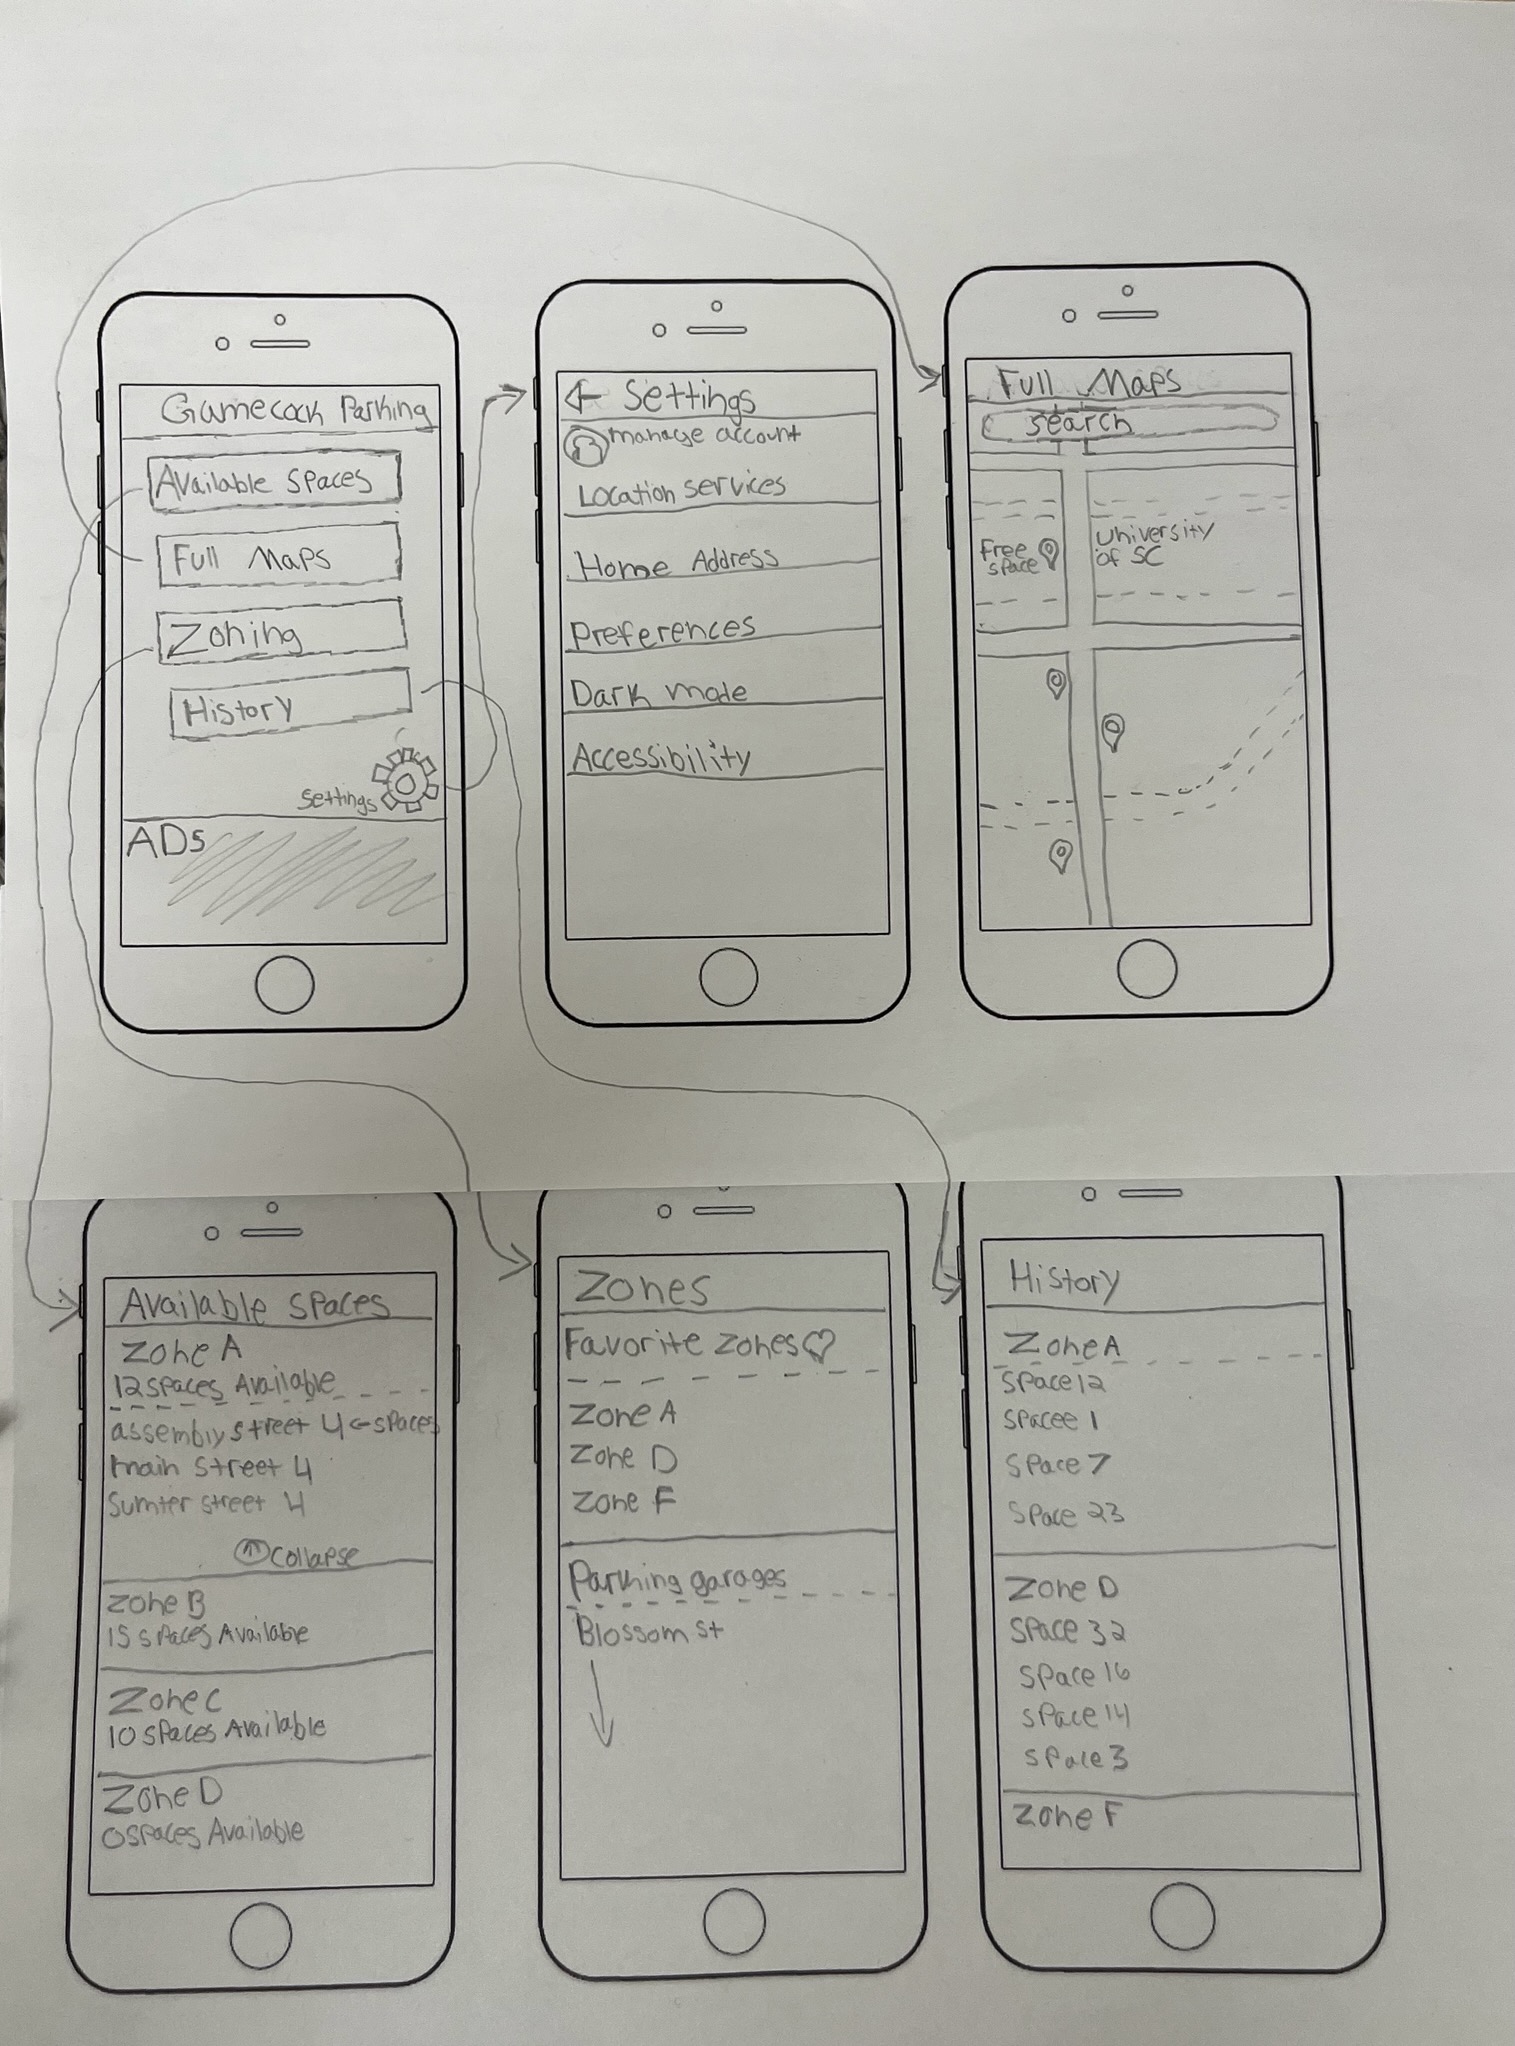 Gamecock Parking
Available spaces
Full Maps
Zoning
History
settings
ADs
Settings
manage account
Location services
Home Address
Preferences
Dark mode
Accessibility
Full Maps
search
Free
space
University
of SC
Available spaces
Zone A
12 spaces Available
assembly street 4 ← spaces
main street 4
Sumter street 4
collapse
Zone B
15 spaces Available
Zone C
10 spaces Available
Zone D
0 spaces Available
Zones
Favorite zones
Zone A
Zone D
Zone F
Parking garages
Blossom st
History
Zone A
Space 12
spacee 1
space 7
space 23
Zone D
space 32
space 16
space 14
space 3
Zone F